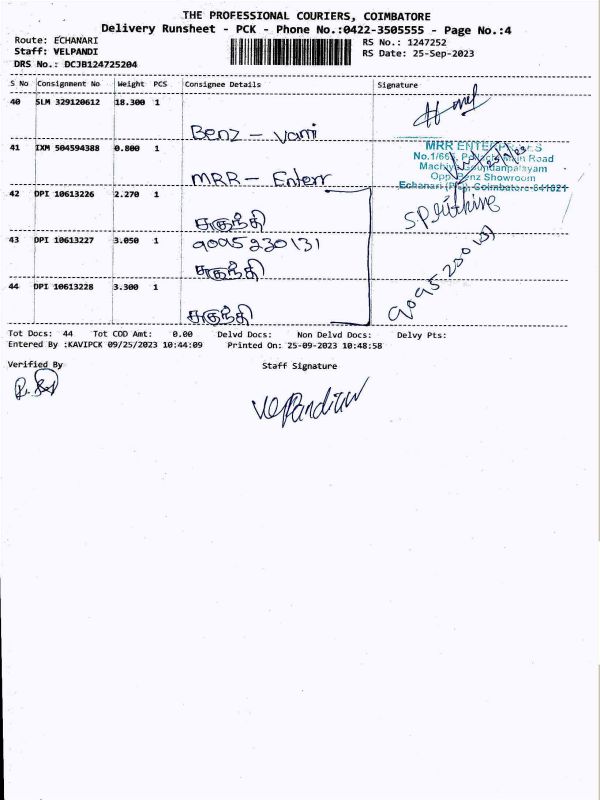 THE PROFESSIONAL COURIERS, COIMBATORE
Delivery Runsheet - PCK - Phone No.:0422-3505555 - Page No.:4
Route: ECHANARI
RS No.: 1247252
Staff: VELPANDI
RS Date: 25-Sep-2023
DRS No.: DCJB124725204
S No Consignment No Weight PCS Consignee Details Signature
40 SLM 329120612 18.300 1
Benz - Vami
41 IXM 504594388 0.800 1
MRR ENTERPRISES
No.1/66 Main Road
Opp. Benz Showroom
Echanari Coimbatore-641021
MRR - Enterr
42 DPI 10613226 2.270 1
சுகுந்தி
43 DPI 10613227 3.050 1
9095230131
சுகுந்தி
44 DPI 10613228 3.300 1
சுகுந்தி
Tot Docs: 44 Tot COD Amt: 0.00 Delvd Docs: Non Delvd Docs: Delvy Pts:
Entered By :KAVIPCK 09/25/2023 10:44:09 Printed On: 25-09-2023 10:48:58
Verified By Staff Signature